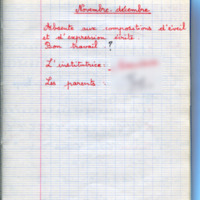 Novembre-décembre
Absente aux compositions d'éveil
et d'expression écrite
Bon travail ?
L'institutrice:
Les parents :